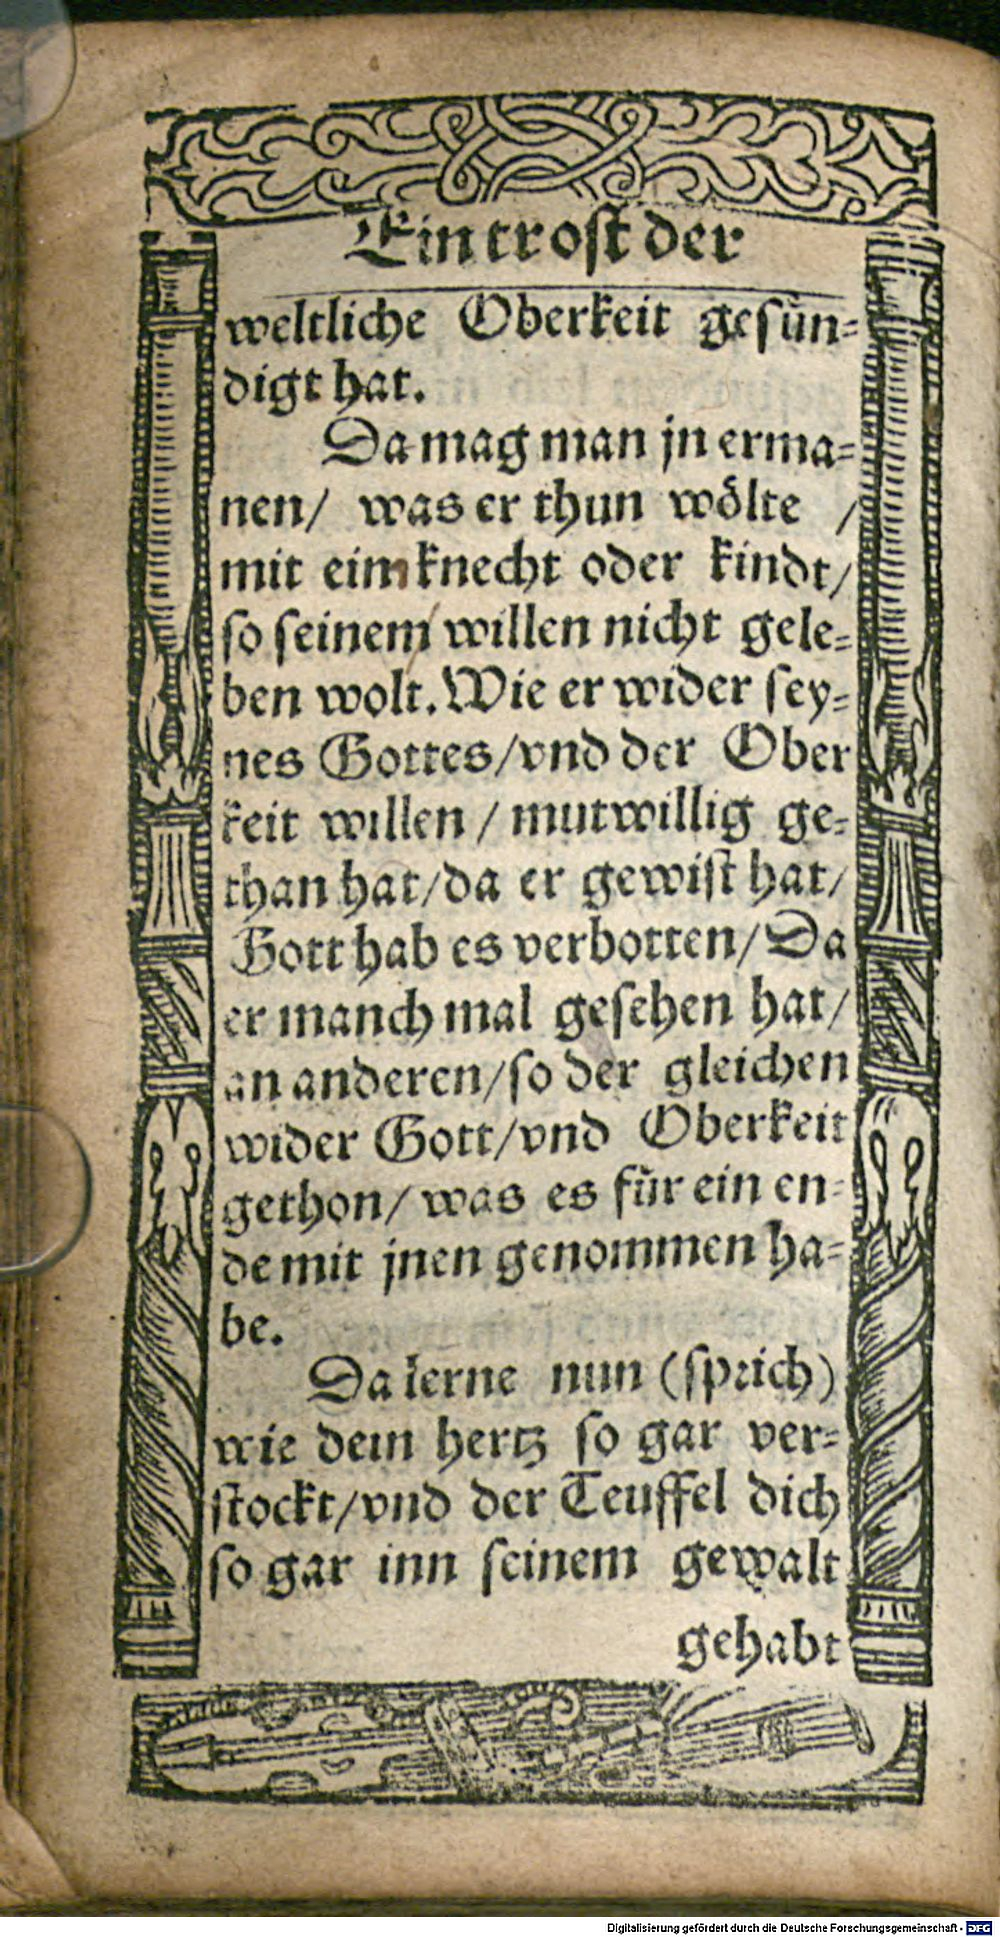 Ein trost der
weltliche Oberkeit gesün-
digt hat.
Da mag man jn erma-
nen/ was er thun wölte /
mit eim knecht oder kindt/
so seinem willen nicht gele-
ben wolt. Wie er wider sey-
nes Gottes/vnd der Ober
keit willen / mutwillig ge-
than hat/da er gewist hat/
Gott hab es verbotten/Da
er manch mal gesehen hat/
an anderen/so der gleichen
wider Gott/vnd Oberkeit
gethon/ was es für ein en-
de mit jnen genommen ha-
be.
Da lerne nun (sprich)
wie dein hertz so gar ver-
stockt/vnd der Teuffel dich
so gar inn seinem gewalt
gehabt
Digitalisierung gefördert durch die Deutsche Forschungsgemeinschaft - DFG